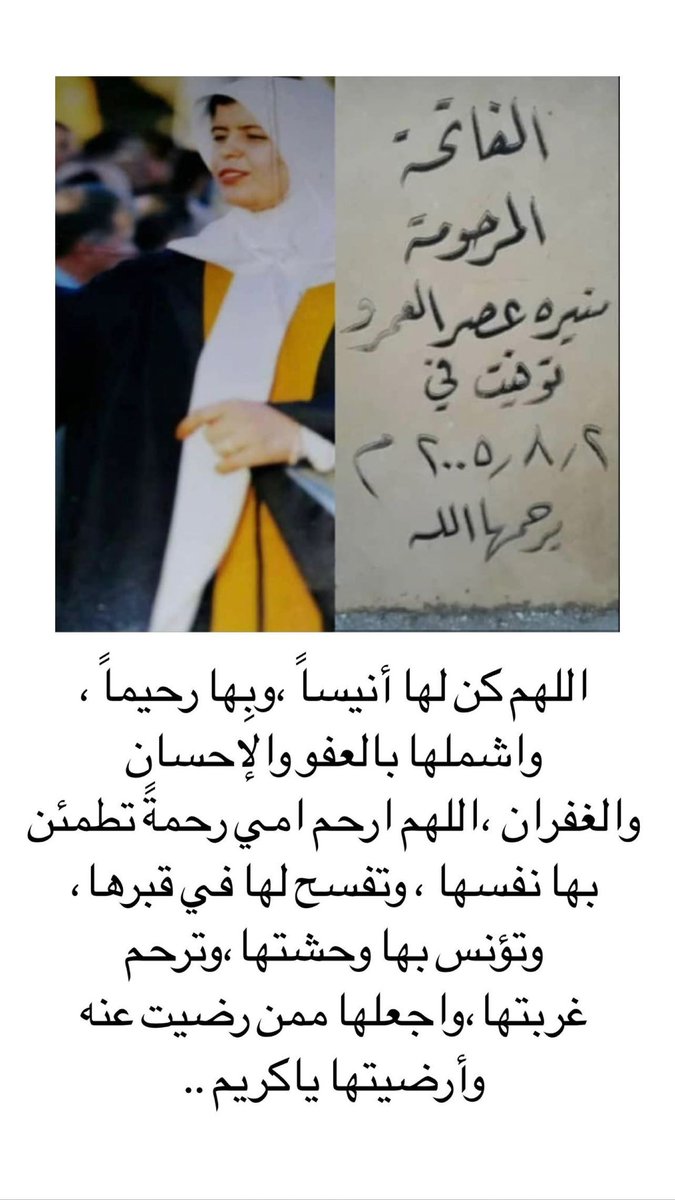 الفاتحة
المرحومة
منيره عصر العمرو
توفيت في
٢ / ٨ / ٢٠٠٥ م
يرحمها الله
اللهم كن لها أنيساً ،وبِها رحيماً ،
واشملها بالعفو والإحسان
والغفران ،اللهم ارحم امي رحمةً تطمئن
بها نفسها ، وتفسح لها في قبرها ،
وتؤنس بها وحشتها ،وترحم
غربتها ،واجعلها ممن رضيت عنه
وأرضيتها ياكريم ..